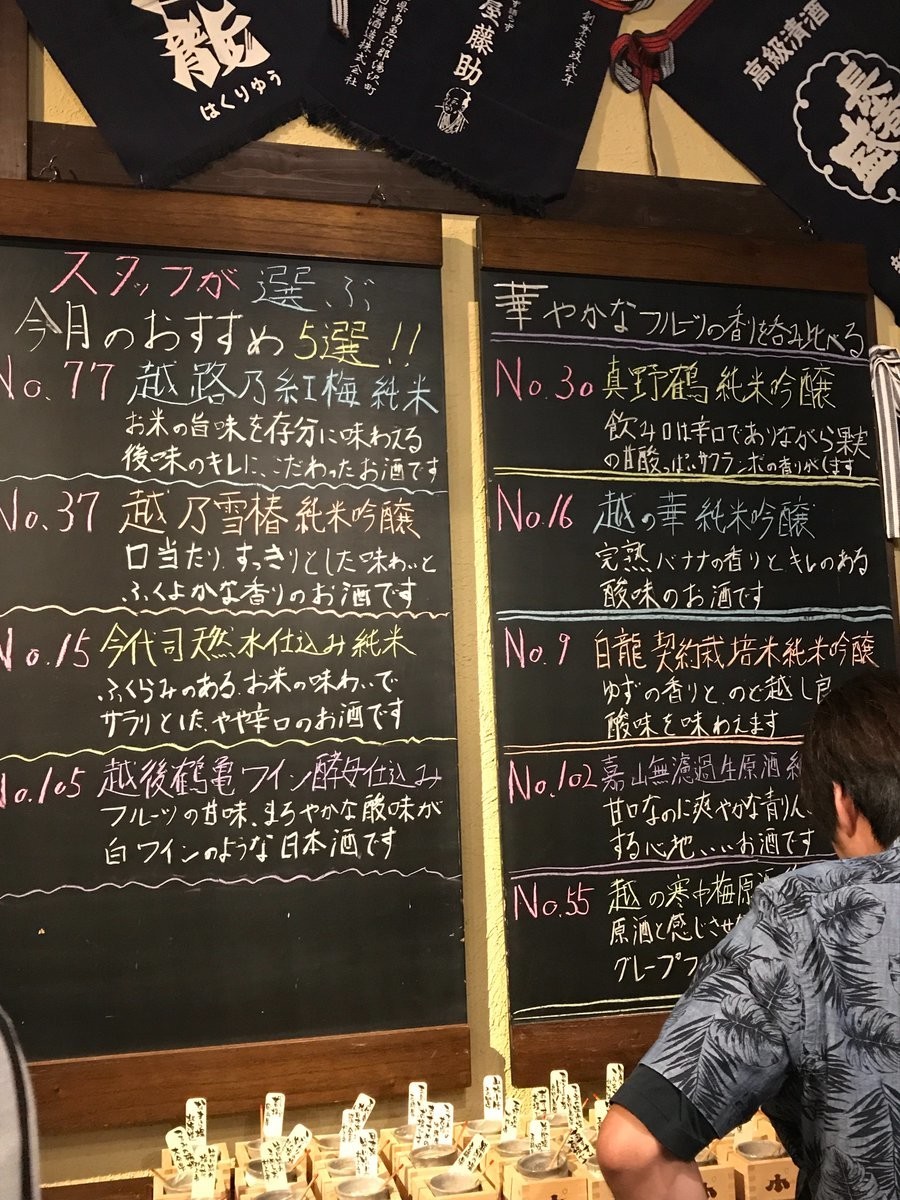 龍
はくりゆう
県南魚沼郡湯沢町
白瀧酒造株式会社
屋藤助
創業安政弐年
高級清酒
長者盛
スタッフが選ぶ
今月のおすすめ5選!!
No.77 越路乃紅梅 純米
お米の旨味を存分に味わえる
後味のキレに、こだわったお酒です
No.37 越乃雪椿 純米吟醸
口当たり、すっきりとした味わいと
ふくよかな香りのお酒です
No.15 今代司 天然水仕込み 純米
ふくらみのある、お米の味わいで
サラリとした、やや辛口のお酒です
No.105 越後鶴亀 ワイン酵母仕込み
フルーツの甘味、まろやかな酸味が
白ワインのような日本酒です
華やかなフルーツの香りを呑み比べる
No.30 真野鶴 純米吟醸
飲み口は辛口でありながら果実
の甘酸っぱいサクランボの香りがします
No.16 越の華 純米吟醸
完熟バナナの香りとキレのある
酸味のお酒です
No.9 白龍 契約栽培米純米吟醸
ゆずの香りと、のど越し良
酸味を味わえます
No.102 嘉山無濾過生原酒 純
甘口なのに爽やかな青りん
する心地いいお酒です
No.55 越の寒中梅原酒
原酒と感じさせ
グレープフ